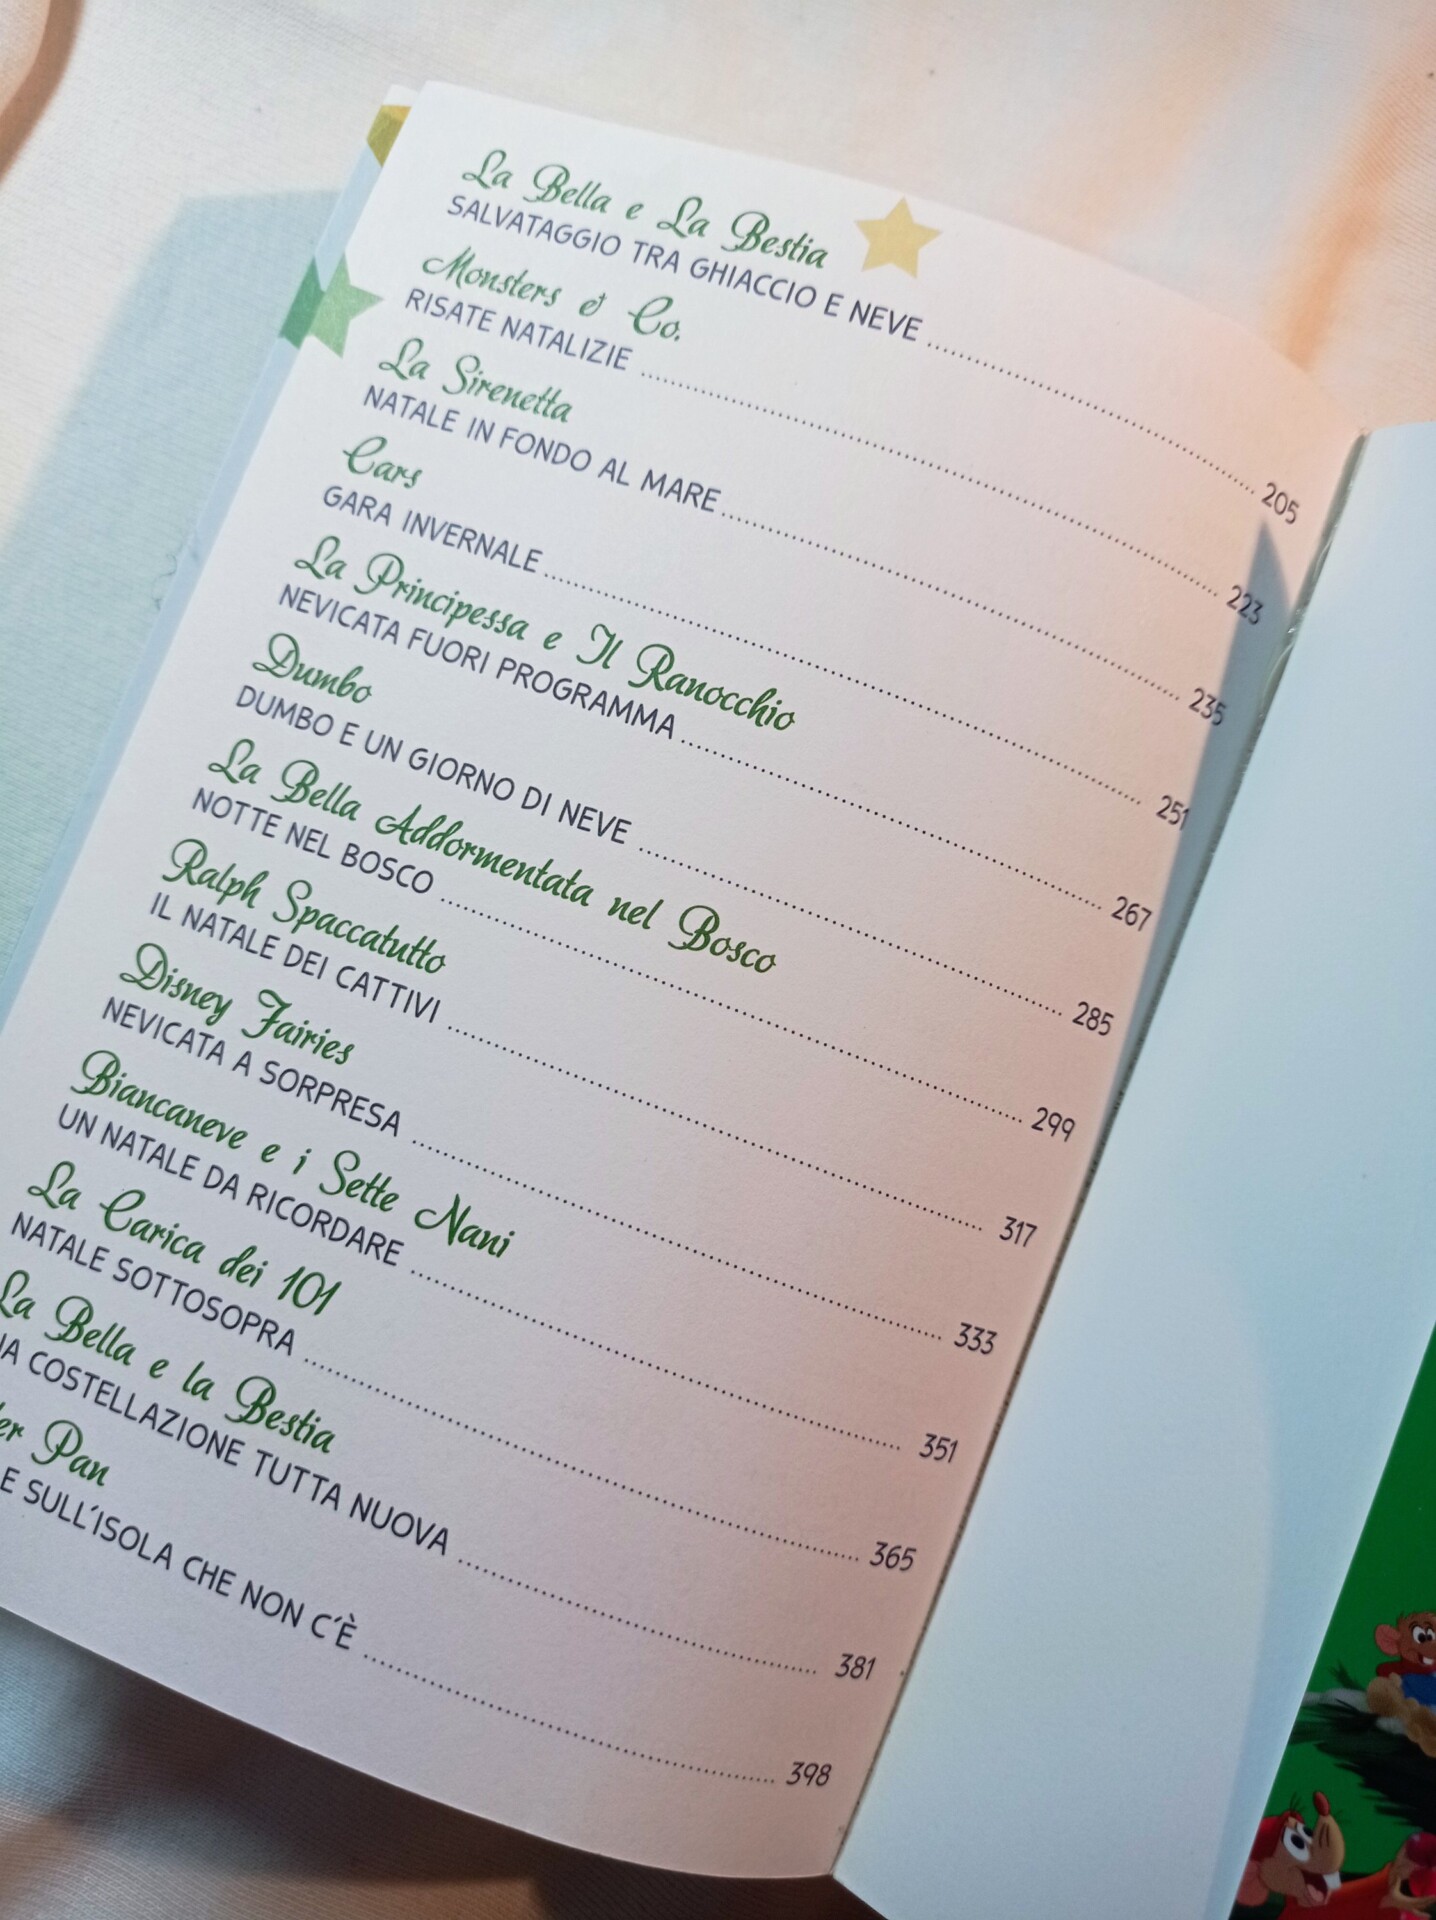 La Bella e La Bestia
SALVATAGGIO TRA GHIACCIO E NEVE 205
Monsters & Co.
RISATE NATALIZIE 223
La Sirenetta
NATALE IN FONDO AL MARE 235
Cars
GARA INVERNALE 251
La Principessa e Il Ranocchio
NEVICATA FUORI PROGRAMMA 267
Dumbo
DUMBO E UN GIORNO DI NEVE 285
La Bella Addormentata nel Bosco
NOTTE NEL BOSCO 299
Ralph Spaccatutto
IL NATALE DEI CATTIVI 317
Disney Fairies
NEVICATA A SORPRESA 333
Biancaneve e i Sette Nani
UN NATALE DA RICORDARE 351
La Carica dei 101
NATALE SOTTOSOPRA 365
La Bella e la Bestia
COSTELLAZIONE TUTTA NUOVA 381
Pan
SULL'ISOLA CHE NON C'È 398